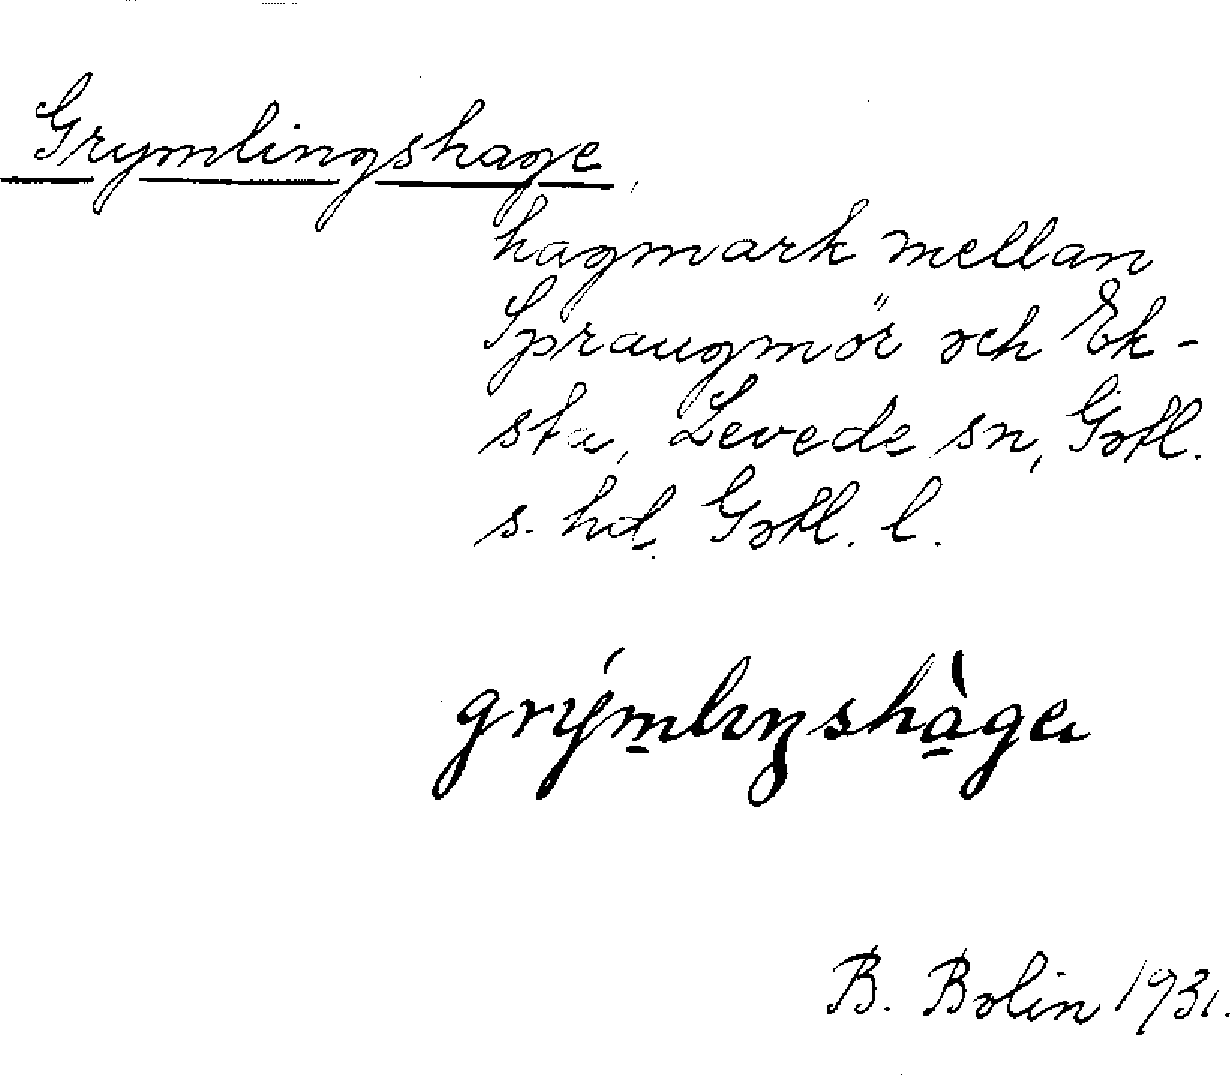 Grymlingshage,
hagmark mellan
Spraugmör och Ek-
sta, Levede sn, Gotl.
s. hd. Gotl. l.
grýmlıŋshàgeı
B. Bolin 1931.